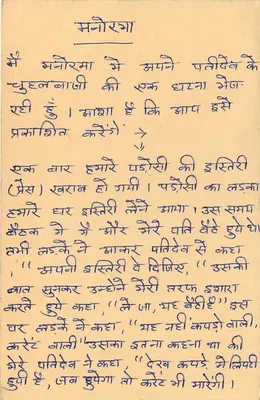 मनोरमा
मै मनोरमा मे अपने पतीदेव के
चुहलबाजी की एक घटना भेज
रही हुं । आशा है कि आप इसे
प्रकाशित करेंगे →
एक बार हमारे पड़ोसी की इस्तिरी
(प्रेस) खराब हो गयी । पड़ोसी का लड़का
हमारे घर इस्तिरी लेने आया । उस समय
बैठक मे मै और मेरे पति बैठे हुये थे
तभी लड़के ने आकर पतिदेव से कहा
, " अपनी इस्तिरी दे दिजिए, " उसकी
बात सुनकर उन्होंने मेरी तरफ इशारा
करते हुये कहा, "ले जा, यह बैठी है" इस
पर लड़के ने कहा, " यह नहीं कपड़ो वाली,
करेंट वाली" उसका इतना कहना था की
मेरे पतिदेव ने कहा, "देख कपड़े मे लिपटी
हुयी है, जब छुयेगा तो करेंट भी मारेगी ।